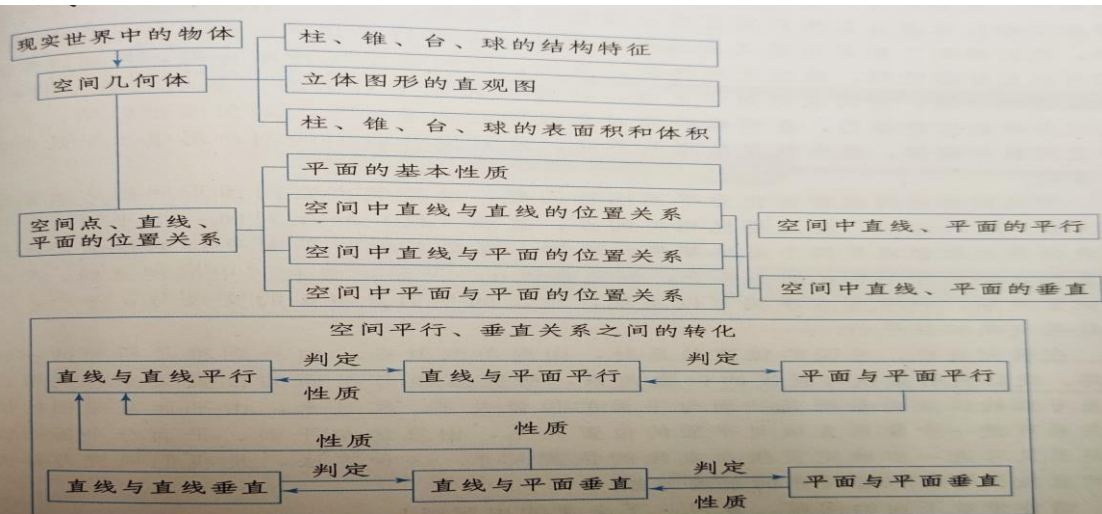 现实世界中的物体
空间几何体
柱、锥、台、球的结构特征
立体图形的直观图
柱、锥、台、球的表面积和体积
空间点、直线、
平面的位置关系
平面的基本性质
空间中直线与直线的位置关系
空间中直线与平面的位置关系
空间中平面与平面的位置关系
空间中直线、平面的平行
空间中直线、平面的垂直
空间平行、垂直关系之间的转化
直线与直线平行
判定
性质
直线与平面平行
判定
平面与平面平行
性质
性质
直线与直线垂直
判定
直线与平面垂直
判定
性质
平面与平面垂直